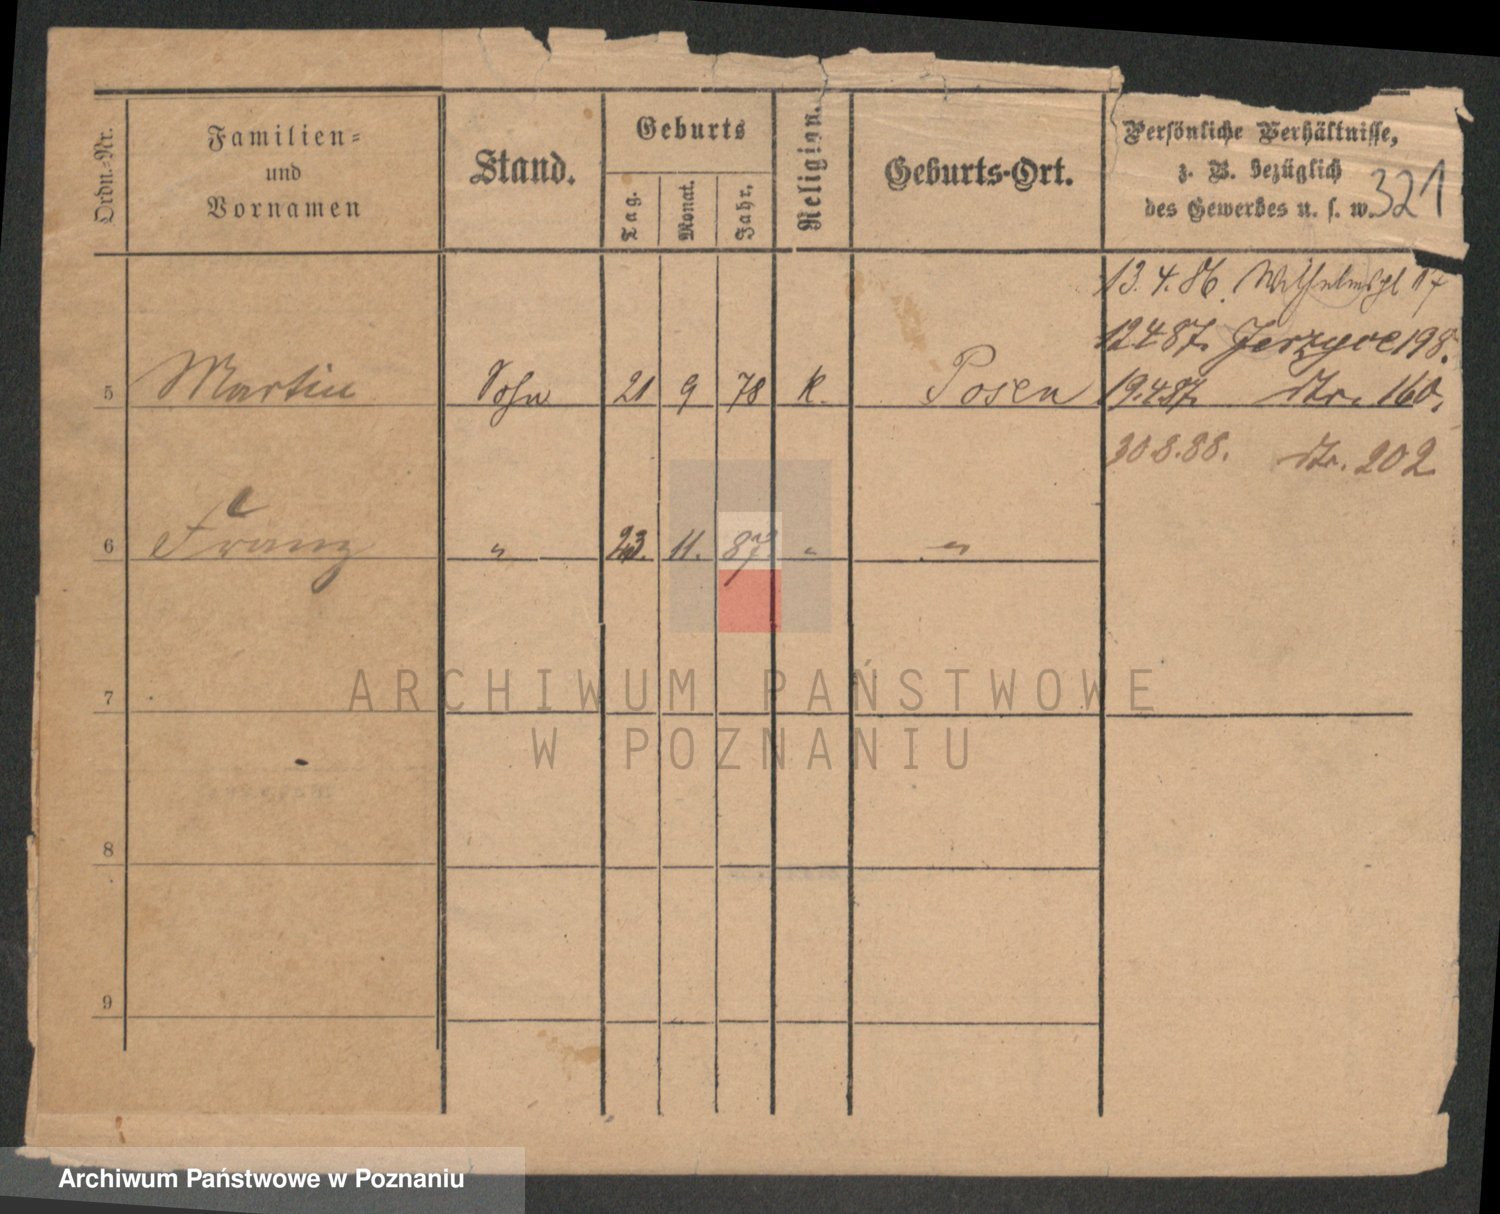 Ordn.-Nr.
Familien-
und
Vornamen
Stand.
Geburts
Tag.
Monat.
Jahr.
Religion.
Geburts-Ort.
Persönliche Verhältnisse,
z. B. bezüglich
des Gewerbes u. s. w.
321
13.4.86. Wilhelmspl 17
12487. Jerzyce 198.
5 Martin Sohn 21 9 78 k. Posen 19.487. dto. 160.
30.8.88. dto. 202
6 Franz " 23. 11. 87. " "
7
8
9
ARCHIWUM PAŃSTWOWE
W POZNANIU
Archiwum Państwowe w Poznaniu